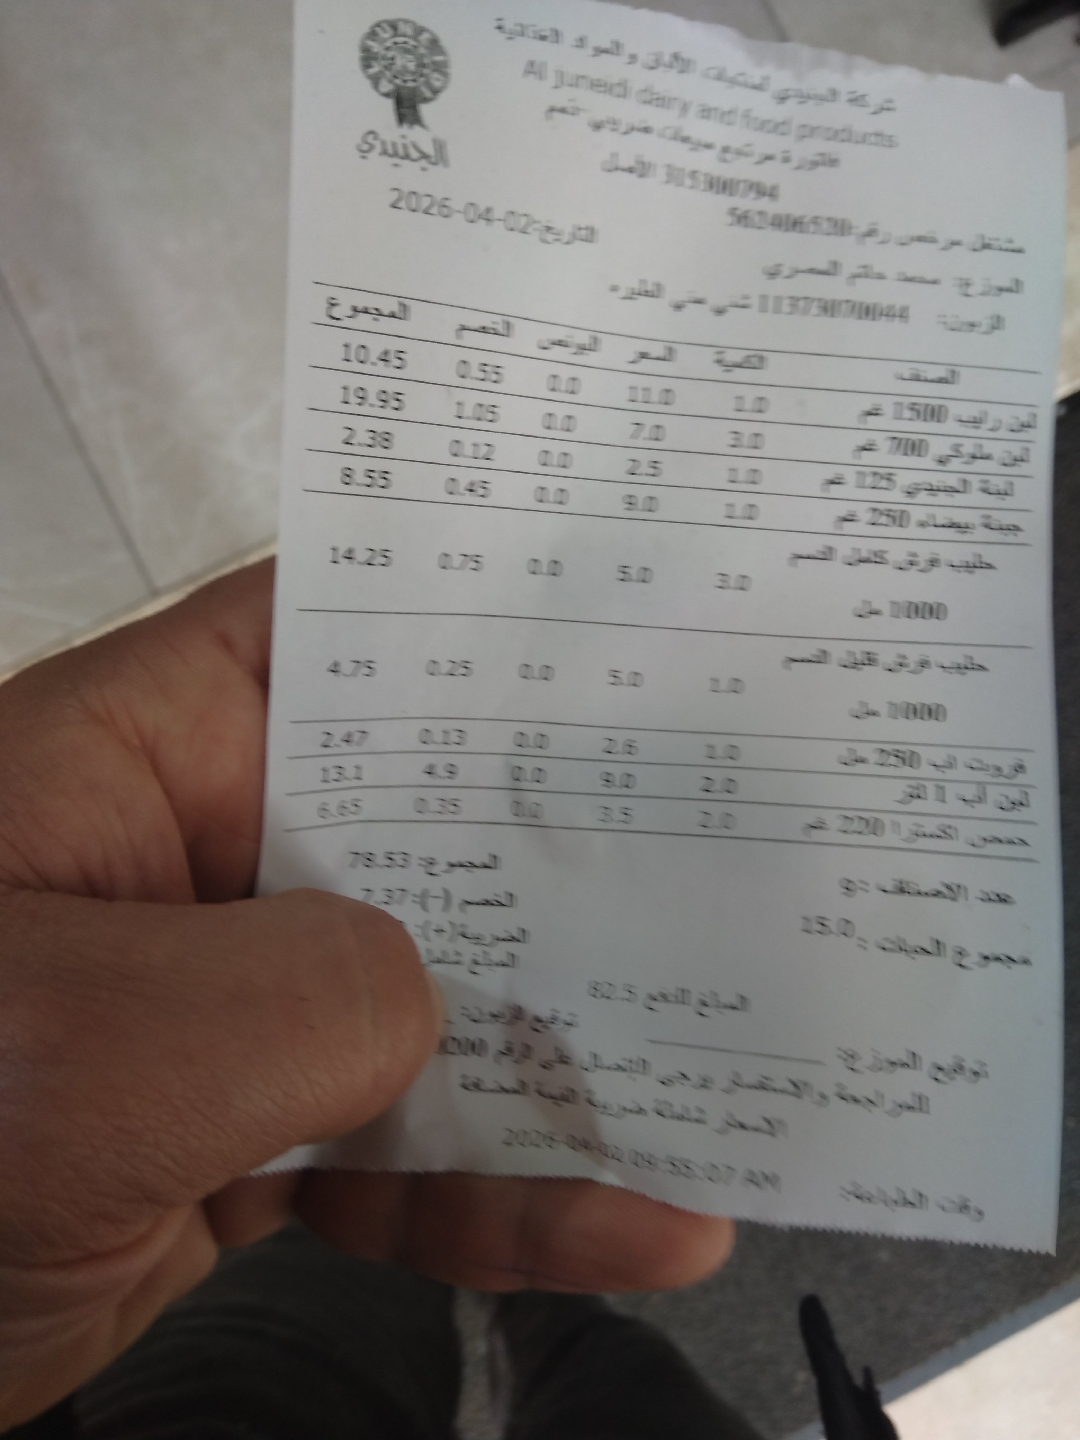 شركة الجنيدي لمنتجات الألبان والمواد الغذائية
Al Juneidi dairy and food products
الجنيدي
فاتورة مرتجع مبيعات ضريبي خصم
315300794 الأصل
مشتغل مرخص رقم:562406520
التاريخ:2026-04-02
الموزع: محمد حاتم المصري
الزبون: 11373070044
الصنف الكمية السعر البونص الخصم المجموع
لبن رايب 1500 غم 1.0 11.0 0.0 0.55 10.45
لبن ملوكي 700 غم 3.0 7.0 0.0 1.05 19.95
لبنة الجنيدي 125 غم 1.0 2.5 0.0 0.12 2.38
جبنة بيضاء 250 غم 1.0 9.0 0.0 0.45 8.55
حليب فرش كامل الدسم 3.0 5.0 0.0 0.75 14.25
1000 مل
حليب فرش قليل الدسم 1.0 5.0 0.0 0.25 4.75
1000 مل
فروت اب 250 مل 1.0 2.6 0.0 0.13 2.47
لبن أب 1 لتر 2.0 9.0 0.0 4.9 13.1
حمص اكسترا 220 غم 2.0 3.5 0.0 0.35 6.65
عدد الاصناف :9 المجموع: 78.53
مجموع الحبات :15.0 الخصم (-):7.37
الضريبة(+):
المبلغ شامل
المبلغ للدفع 82.5
توقيع الموزع: توقيع الزبون:
للمراجعة والاستفسار يرجى الاتصال على الرقم
الاسعار شاملة ضريبة القيمة المضافة
وقت الطباعة: 2026-04-02 09:55:07 AM